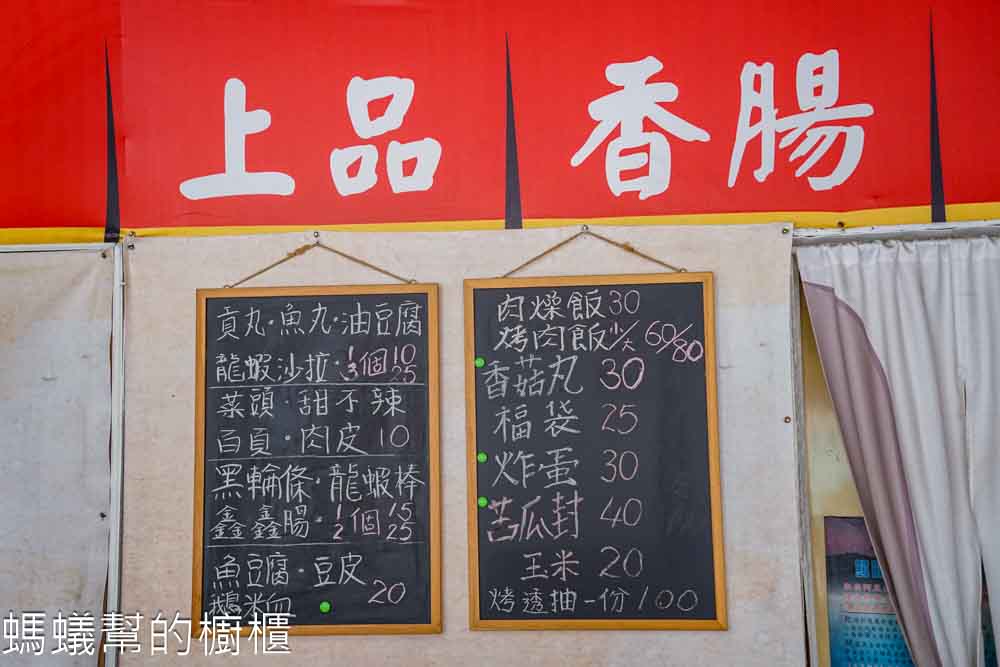 上品 香腸
貢丸·魚丸·油豆腐
龍蝦沙拉·1個10
3個25
菜頭 甜不辣
百頁·肉皮 10
黑輪條·龍蝦棒
鑫鑫腸·1個15
2個25
魚豆腐·豆皮
鵝米血 20
肉燥飯30
烤肉飯小/大 60/80
香菇丸 30
福袋 25
炸蛋 30
苦瓜封 40
玉米 20
烤透抽一份/100
螞蟻幫的櫥櫃